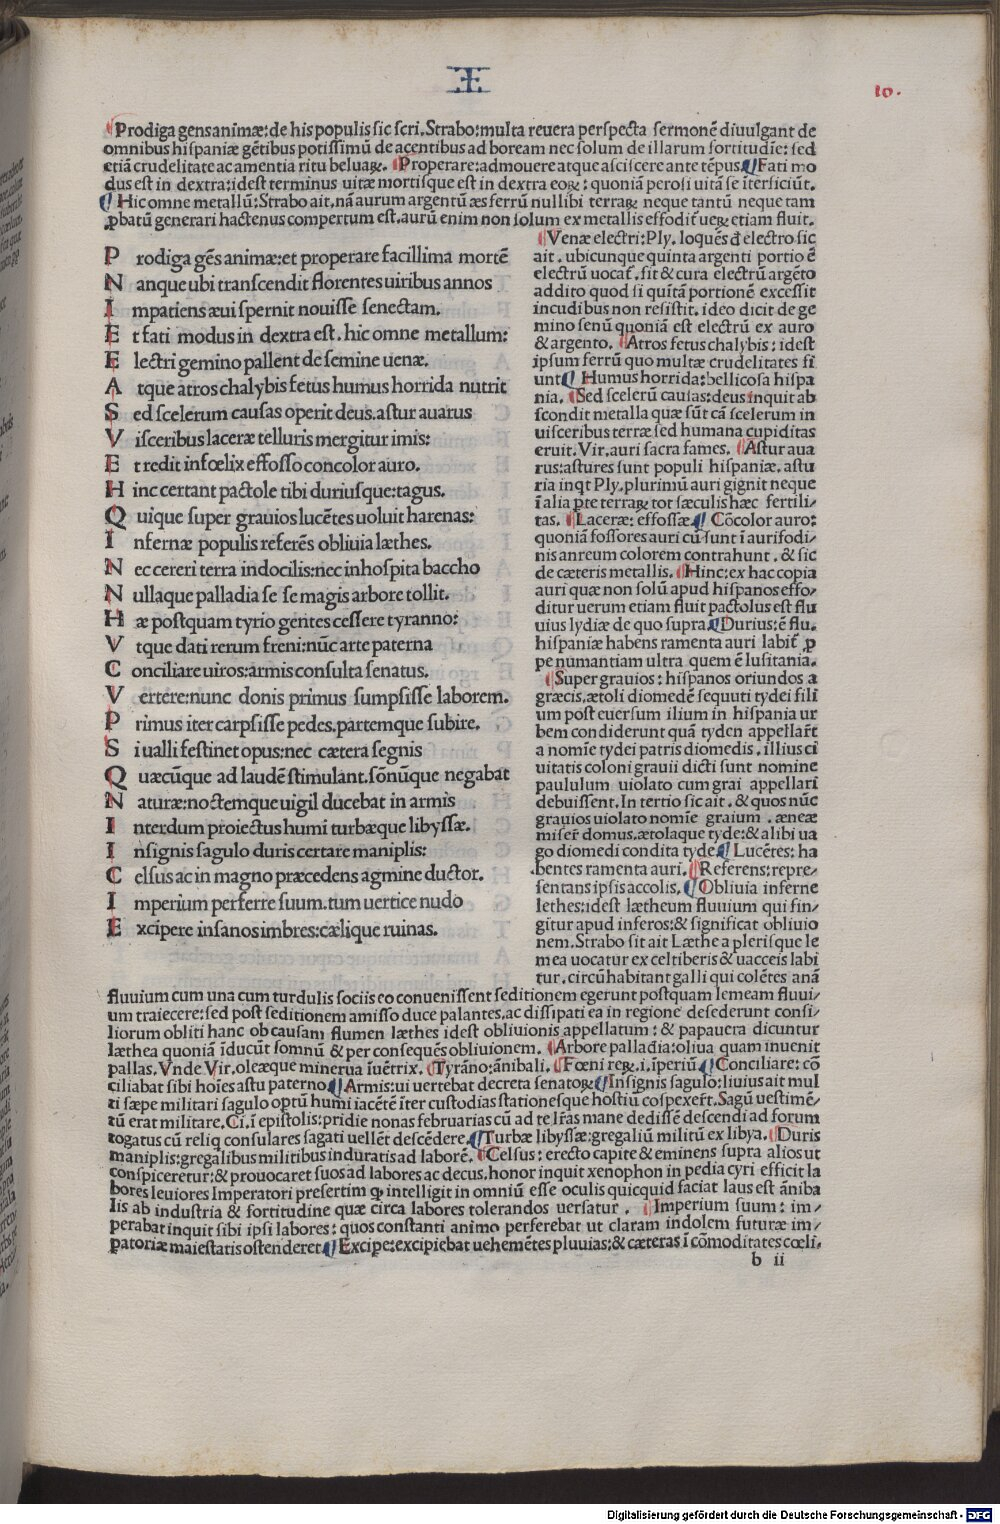 I
10.
Prodiga gens animæ: de his populis sic scri. Strabo: multa reuera perspecta sermonē diuulgant de
omnibus hispaniæ gētibus potissimū de acentibus ad boream nec solum de illarum fortitudīe: sed
etiā crudelitate ac amentia ritu beluaꝝ. Properare: admouere atque asciscere ante tēpus. Fati mo
dus est in dextra: idest terminus uitæ mortisque est in dextra eoꝝ: quoniā perosi uitā se īterficiūt.
Hic omne metallū: Strabo ait. nā aurum argentū æs ferrū nullibi terraꝝ neque tantū neque tam
ꝓbatū generari hactenus compertum est. aurū enim non solum ex metallis effodit̄ ueꝝ etiam fluit.
P rodiga gēs animæ: et properare facillima mortē
N anque ubi transcendit florentes uiribus annos
I mpatiens æui spernit nouisse senectam.
E t fati modus in dextra est. hic omne metallum:
E lectri gemino pallent de semine uenæ.
A tque atros chalybis fetus humus horrida nutrit
S ed scelerum causas operit deus. astur auarus
V isceribus laceræ telluris mergitur imis:
E t redit infœlix effosso concolor auro.
H inc certant pactole tibi duriusque: tagus.
Q uique super grauios lucētes uoluit harenas:
I nfernæ populis referēs obliuia læthes.
N ec cereri terra indocilis: nec inhospita baccho
N ullaque palladia se se magis arbore tollit.
H æ postquam tyrio gentes cessere tyranno:
V tque dati rerum freni: nūc arte paterna
C onciliare uiros: armis consulta senatus.
V ertere: nunc donis primus sumpsisse laborem.
P rimus iter carpsisse pedes. partemque subire.
S i ualli festinet opus: nec cætera segnis
Q uæcūque ad laudē stimulant. sōnūque negabat
N aturæ: noctemque uigil ducebat in armis
I nterdum proiectus humi turbæque libyssæ.
I nsignis sagulo duris certare maniplis:
C elsus ac in magno præcedens agmine ductor.
I mperium perferre suum. tum uertice nudo
E xcipere insanos imbres: cælique ruinas.
Venæ electri: Ply. loquēs đ electro sic
ait. ubicunque quinta argenti portio ē
electrū uocat̄. sit & cura electrū argēto
addito quod si quītā portionē excessit
incudibus non resistit. ideo dicit de ge
mino senū quoniā est electrū ex auro
& argento. Atros fetus chalybis: idest
ipsum ferrū quo multæ crudelitates fi
unt Humus horrida: bellicosa hispa
nia. Sed scelerū causas: deus inquit ab
scondit metalla quæ sūt cā scelerum in
uisceribus terræ sed humana cupiditas
eruit. Vir. auri sacra fames. Astur aua
rus: astures sunt populi hispaniæ. astu
ria inqt Ply. plurimū auri gignit neque
ī alia pte terraꝝ tot sæculis hæc fertili/
tas. Laceræ: effossæ Cōcolor auro:
quoniā fossores auri cū sunt ī aurifodi/
nis anreum colorem contrahunt. & sic
de cæteris metallis. Hinc: ex hac copia
auri quæ non solū apud hispanos effo/
ditur uerum etiam fluit pactolus est flu
uius lydiæ de quo supra Durius: ē flu.
hispaniæ habens ramenta auri labit̄ ꝓ
pe numantiam ultra quem ē lusitania.
Super grauios: hispanos oriundos a
græcis. ætoli diomedē sequuti tydei fili
um post euersum ilium in hispania ur
bem condiderunt quā tyden appellar̄t
a nomīe tydei patris diomedis. illius ci
uitatis coloni grauii dicti sunt nomine
paululum uiolato cum grai appellari
debuissent. In tertio sic ait. & quos nūc
grauios uiolato nomīe graium. æneæ
miser̄ domus. ætolaque tyde: & alibi ua
go diomedi condita tyde Lucētes: ha
bentes ramenta auri. Referens: repre/
sentans ipsis accolis. Obliuia inferne
lethes: idest lætheum fluuium qui fin/
gitur apud inferos: & significat obliuio
nem. Strabo sit ait Læthe a plerisque le
mea uocatur ex celtiberis & uacceis labi
tur. circū habitant galli qui colētes anā
fluuium cum una cum turdulis sociis eo conuenissent seditionem egerunt postquam lemeam fluui/
um traiecere: sed post seditionem amisso duce palantes. ac dissipati ea in regione desederunt consi/
liorum obliti hanc ob causam flumen læthes idest obliuionis appellatum: & papauera dicuntur
læthea quoniā īducūt somnū & per consequēs obliuionem. Arbore palladia: oliua quam inuenit
pallas. Vnde Vir. oleæque minerua īuētrix. Tyrāno: ānibali. Fœni reꝝ. i. īperiū Conciliare: cō
ciliabat sibi hoīes astu paterno Armis: ui uertebat decreta senatoꝝ Insignis sagulo: liuius ait mul
ti sæpe militari sagulo optū humi iacētē īter custodias stationesque hostiū cōspexer̄t. Sagū uestimē/
tū erat militare. Ci. ī epistolis: pridie nonas februarias cū ad te lr̄as mane dedissē descendi ad forum
togatus cū reliq consulares sagati uellēt descēdere. Turbæ libyssæ: gregaliū militū ex libya. Duris
maniplis: gregalibus militibus induratis ad laborē. Celsus: erecto capite & eminens supra alios ut
conspiceretur: & prouocaret suos ad labores ac decus. honor inquit xenophon in pedia cyri efficit la
bores leuiores Imperatori presertim ꝙ intelligit in omniū esse oculis quicquid faciat laus est āniba
lis ab industria & fortitudine quæ circa labores tolerandos uersatur. Imperium suum: im/
perabat inquit sibi ipsi labores: quos constanti animo perferebat ut claram indolem futuræ im/
patoriæ maiestatis ostenderet Excipe: excipiebat uehemētes pluuias: & cæteras ī cōmoditates cœli.
b ii
Digitalisierung gefördert durch die Deutsche Forschungsgemeinschaft - DFG